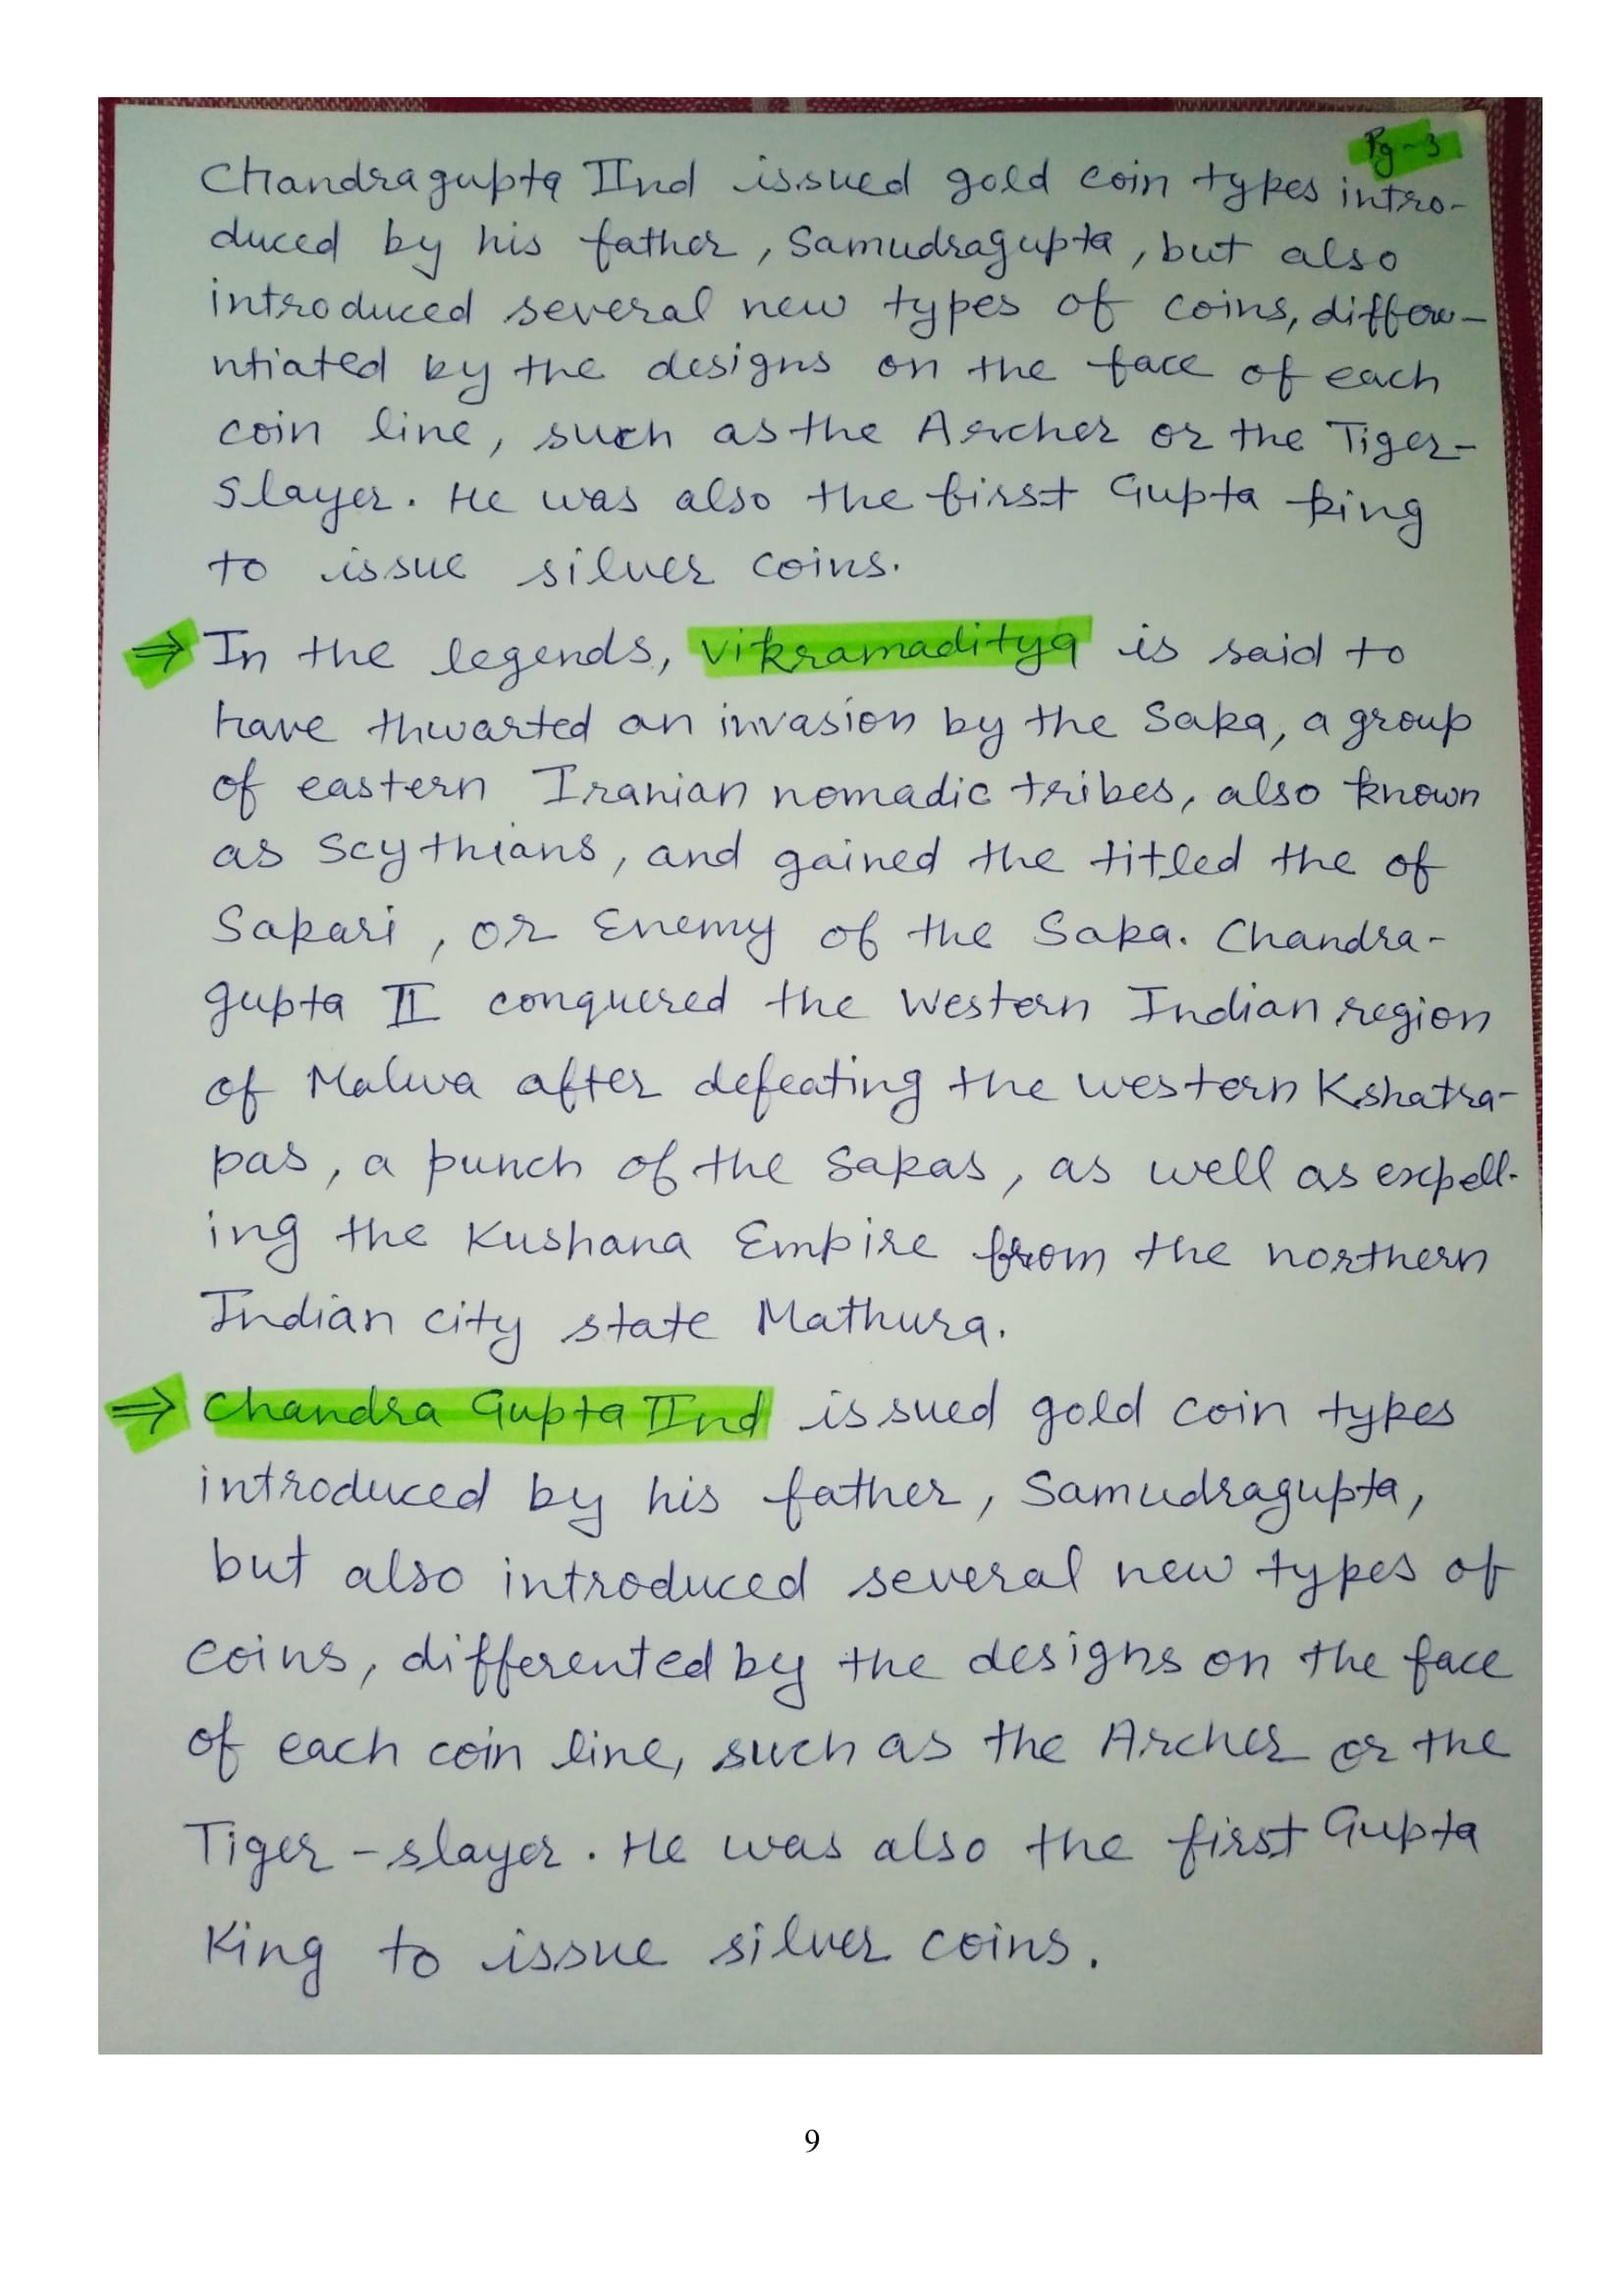 Pg-3
Chandragupta IInd issued gold coin types intro-
duced by his father, Samudragupta, but also
introduced several new types of coins, differe-
ntiated by the designs on the face of each
coin line, such as the Archer or the Tiger-
Slayer. He was also the first Gupta king
to issue silver coins.
⇒ In the legends, Vikramaditya is said to
have thwarted an invasion by the Saka, a group
of eastern Iranian nomadic tribes, also known
as Scythians, and gained the titled the of
Sakari, or Enemy of the Saka. Chandra-
gupta II conquered the Western Indian region
of Malwa after defeating the western Kshatra-
pas, a punch of the Sakas, as well as expell-
ing the Kushana Empire from the northern
Indian city state Mathura.
⇒ Chandra Gupta IInd issued gold coin types
introduced by his father, Samudragupta,
but also introduced several new types of
coins, differented by the designs on the face
of each coin line, such as the Archer or the
Tiger-slayer. He was also the first Gupta
King to issue silver coins.
9